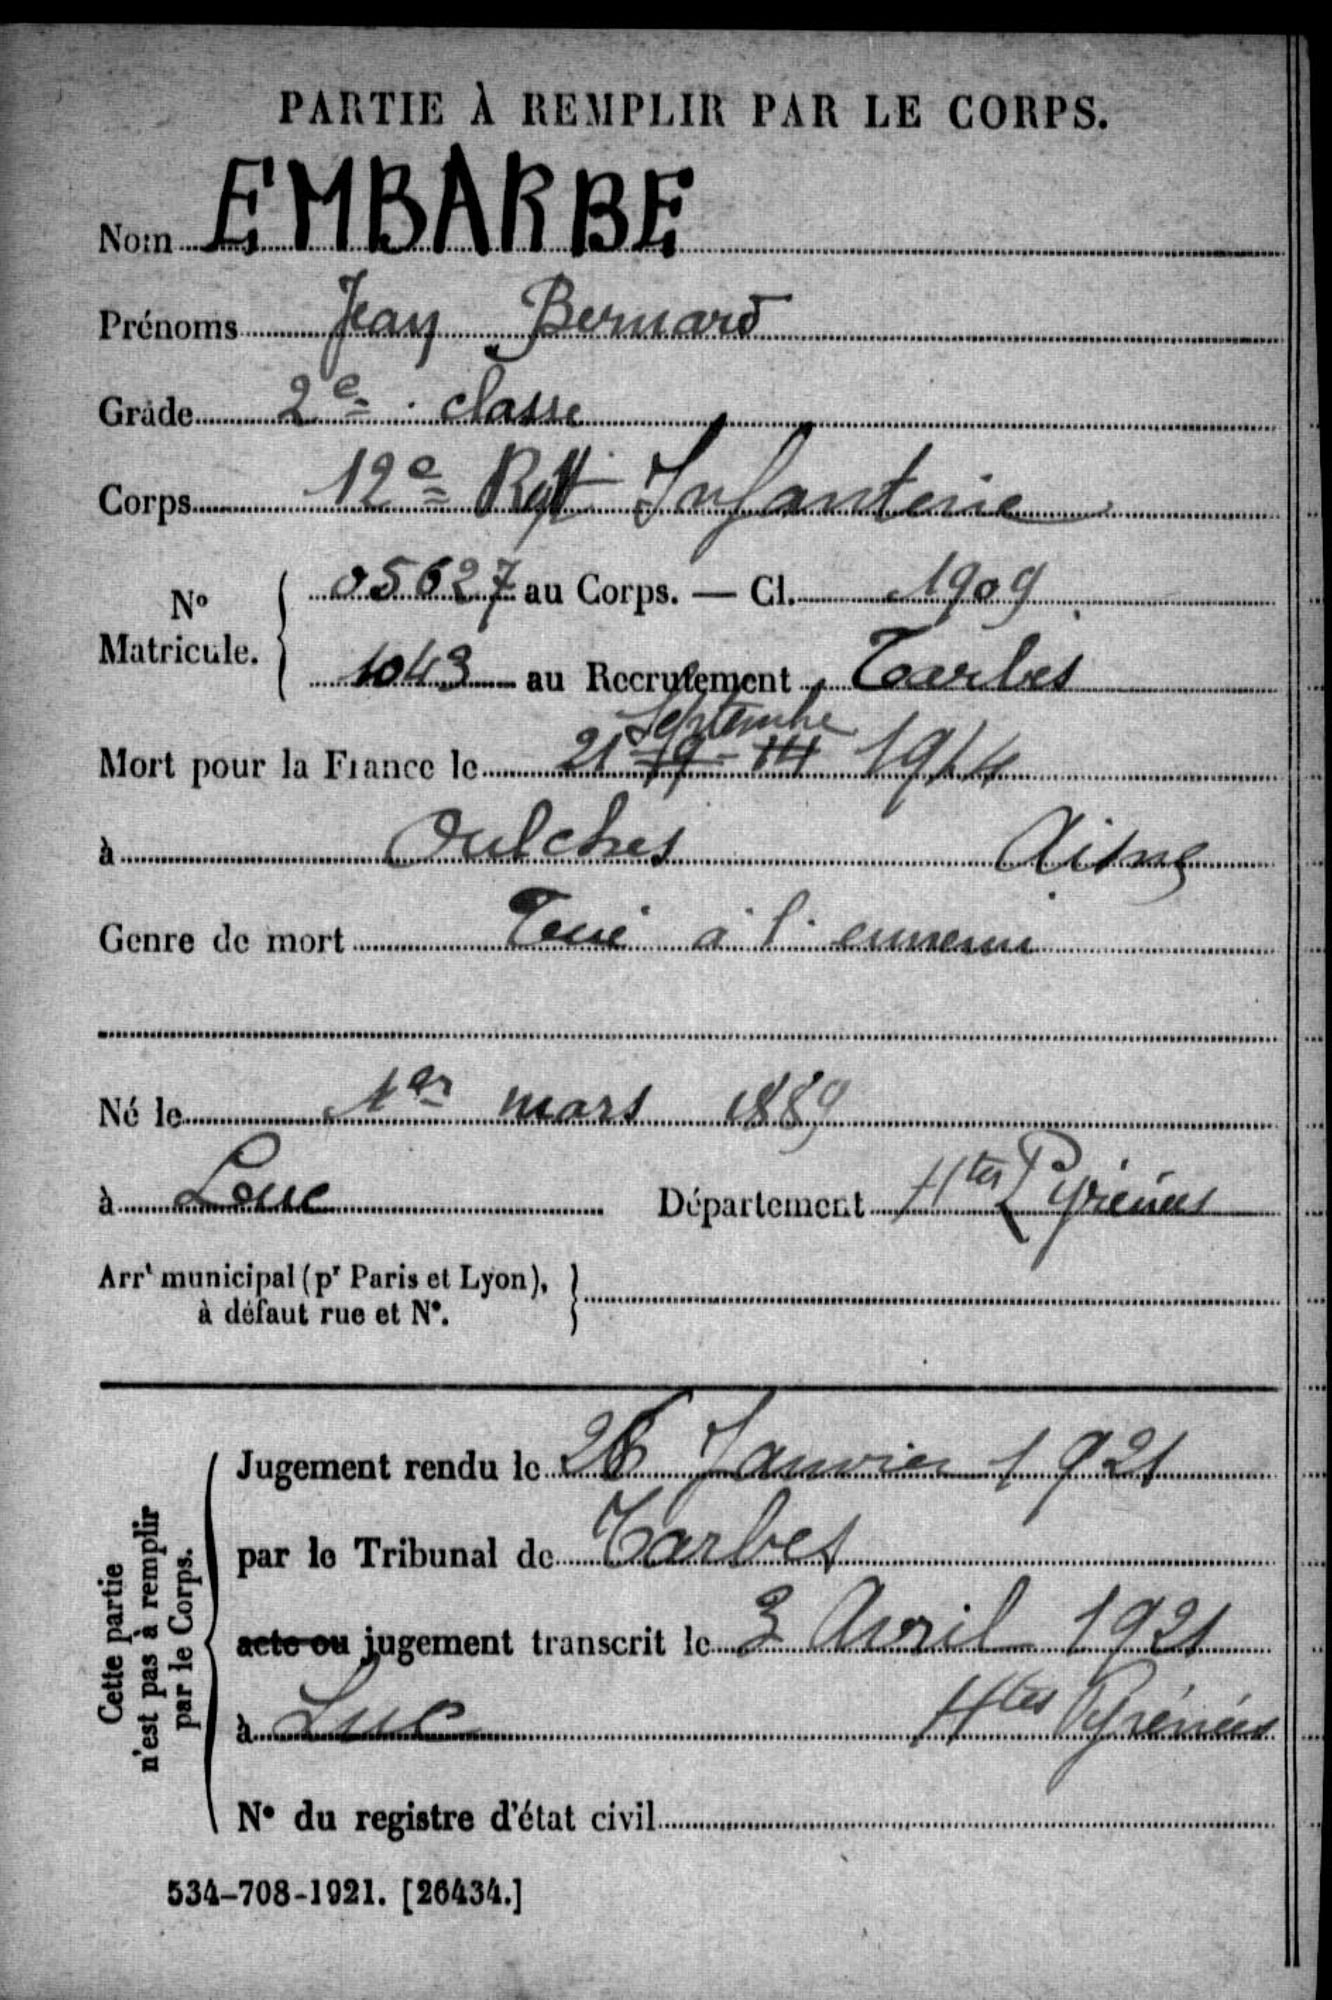 PARTIE À REMPLIR PAR LE CORPS.
Nom EMBARBE
Prénoms Jean Bernard
Grade 2e classe
Corps 12e Regt Infanterie
No Matricule. 05627 au Corps. — Cl. 1909
1043 au Recrutement Tarbes
Septembre
Mort pour la France le 21 - 9 - 14 1914
à Oulches Aisne
Genre de mort Tué à l'ennemi
Né le 1er mars 1889
à Louc Département Htes Pyrénées
Arrt municipal (pr Paris et Lyon),
à défaut rue et No.
Cette partie
n'est pas à remplir
par le Corps.
Jugement rendu le Janvier 1921
par le Tribunal de Tarbes
acte ou jugement transcrit le 3 Avril 1921
à Luc Htes Pyrénées
No du registre d'état civil
534-708-1921. [26434.]